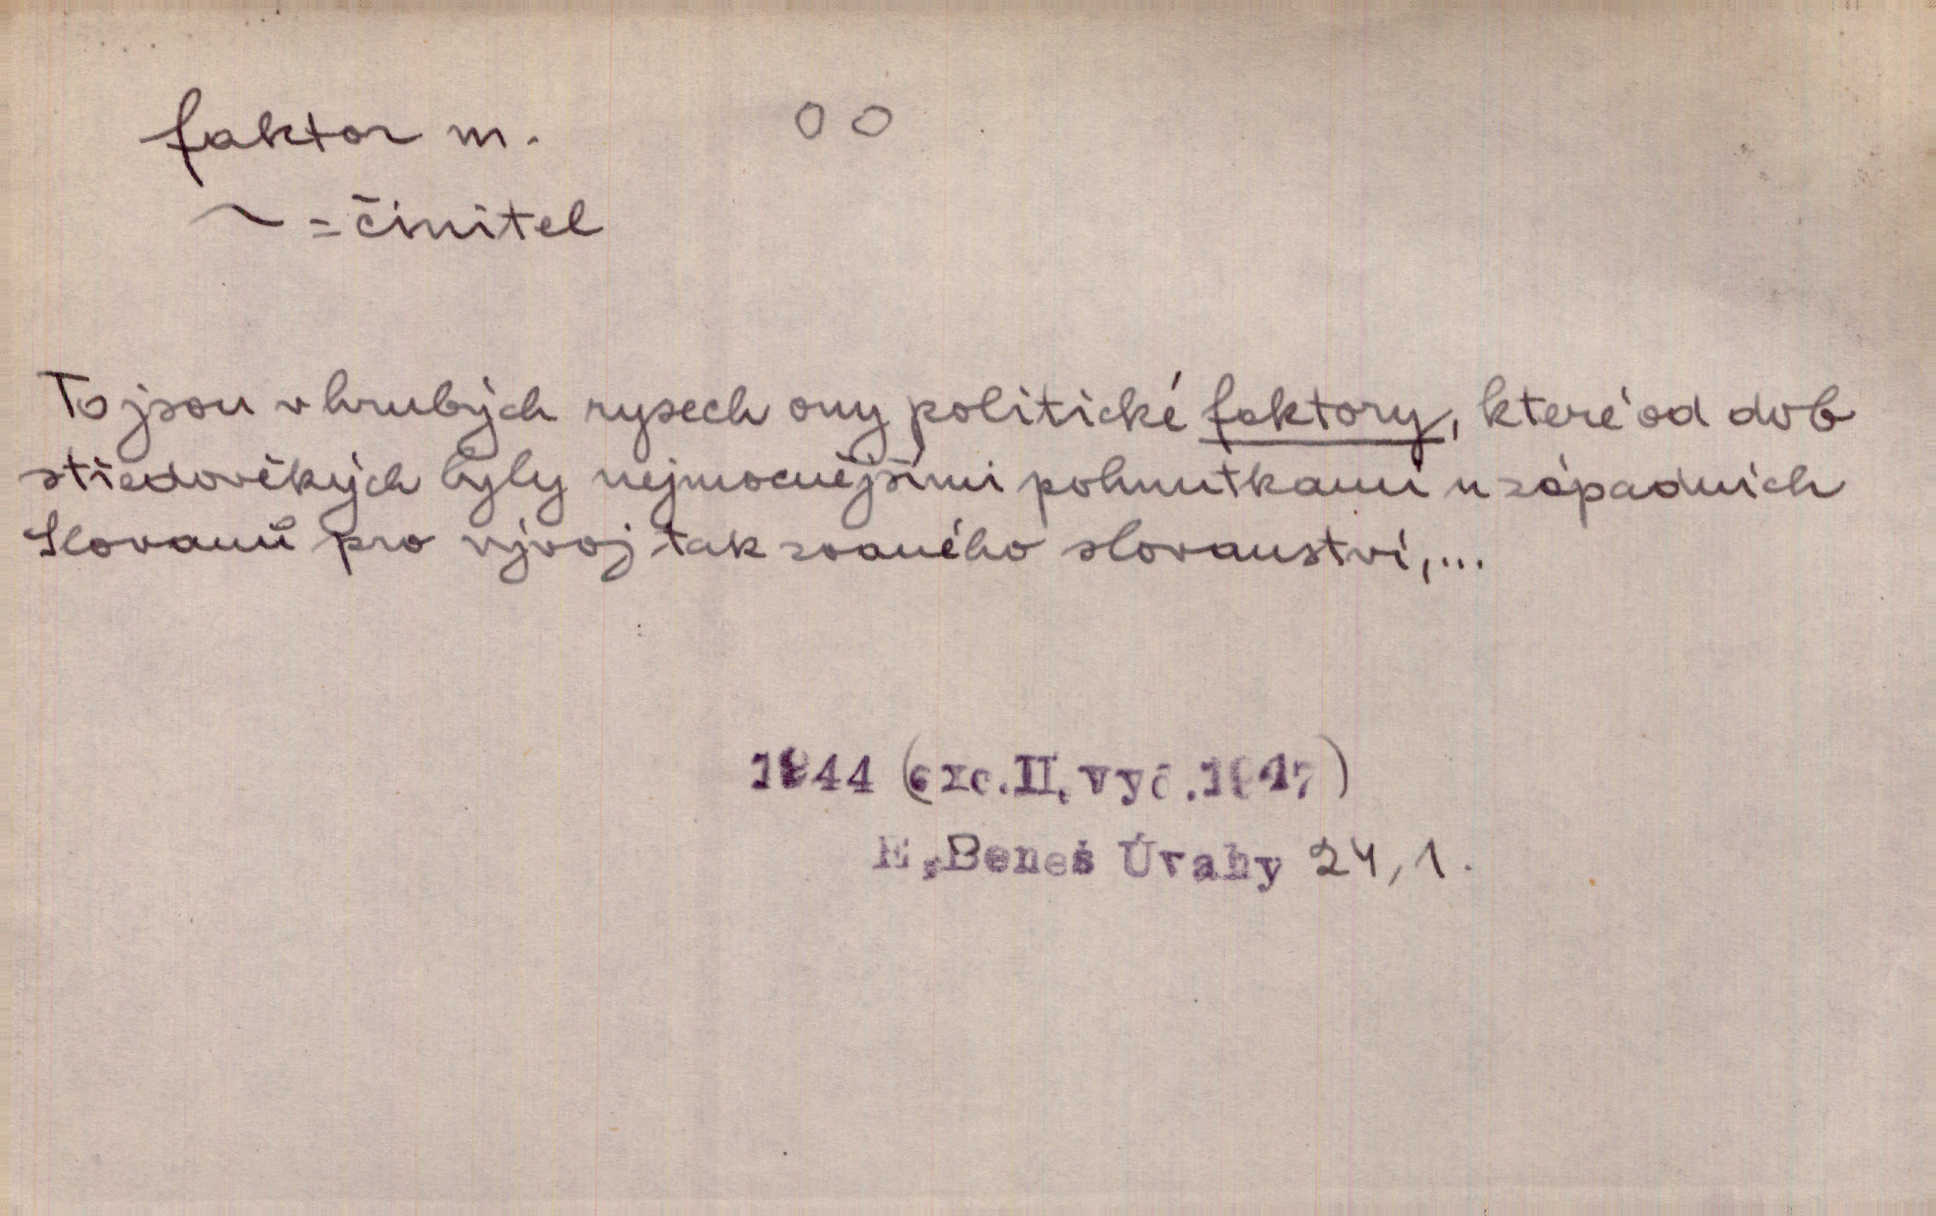 faktor m. 00
~ = činitel
To jsou v hrubých rysech ony politické faktory, které od dob
středověkých byly nejmocnějšími pohnutkami u západních
Slovanů pro vývoj tak zvaného slovanství,...
1944 (exc. II. vyd. 1947)
E. Beneš Úvahy 24, 1.